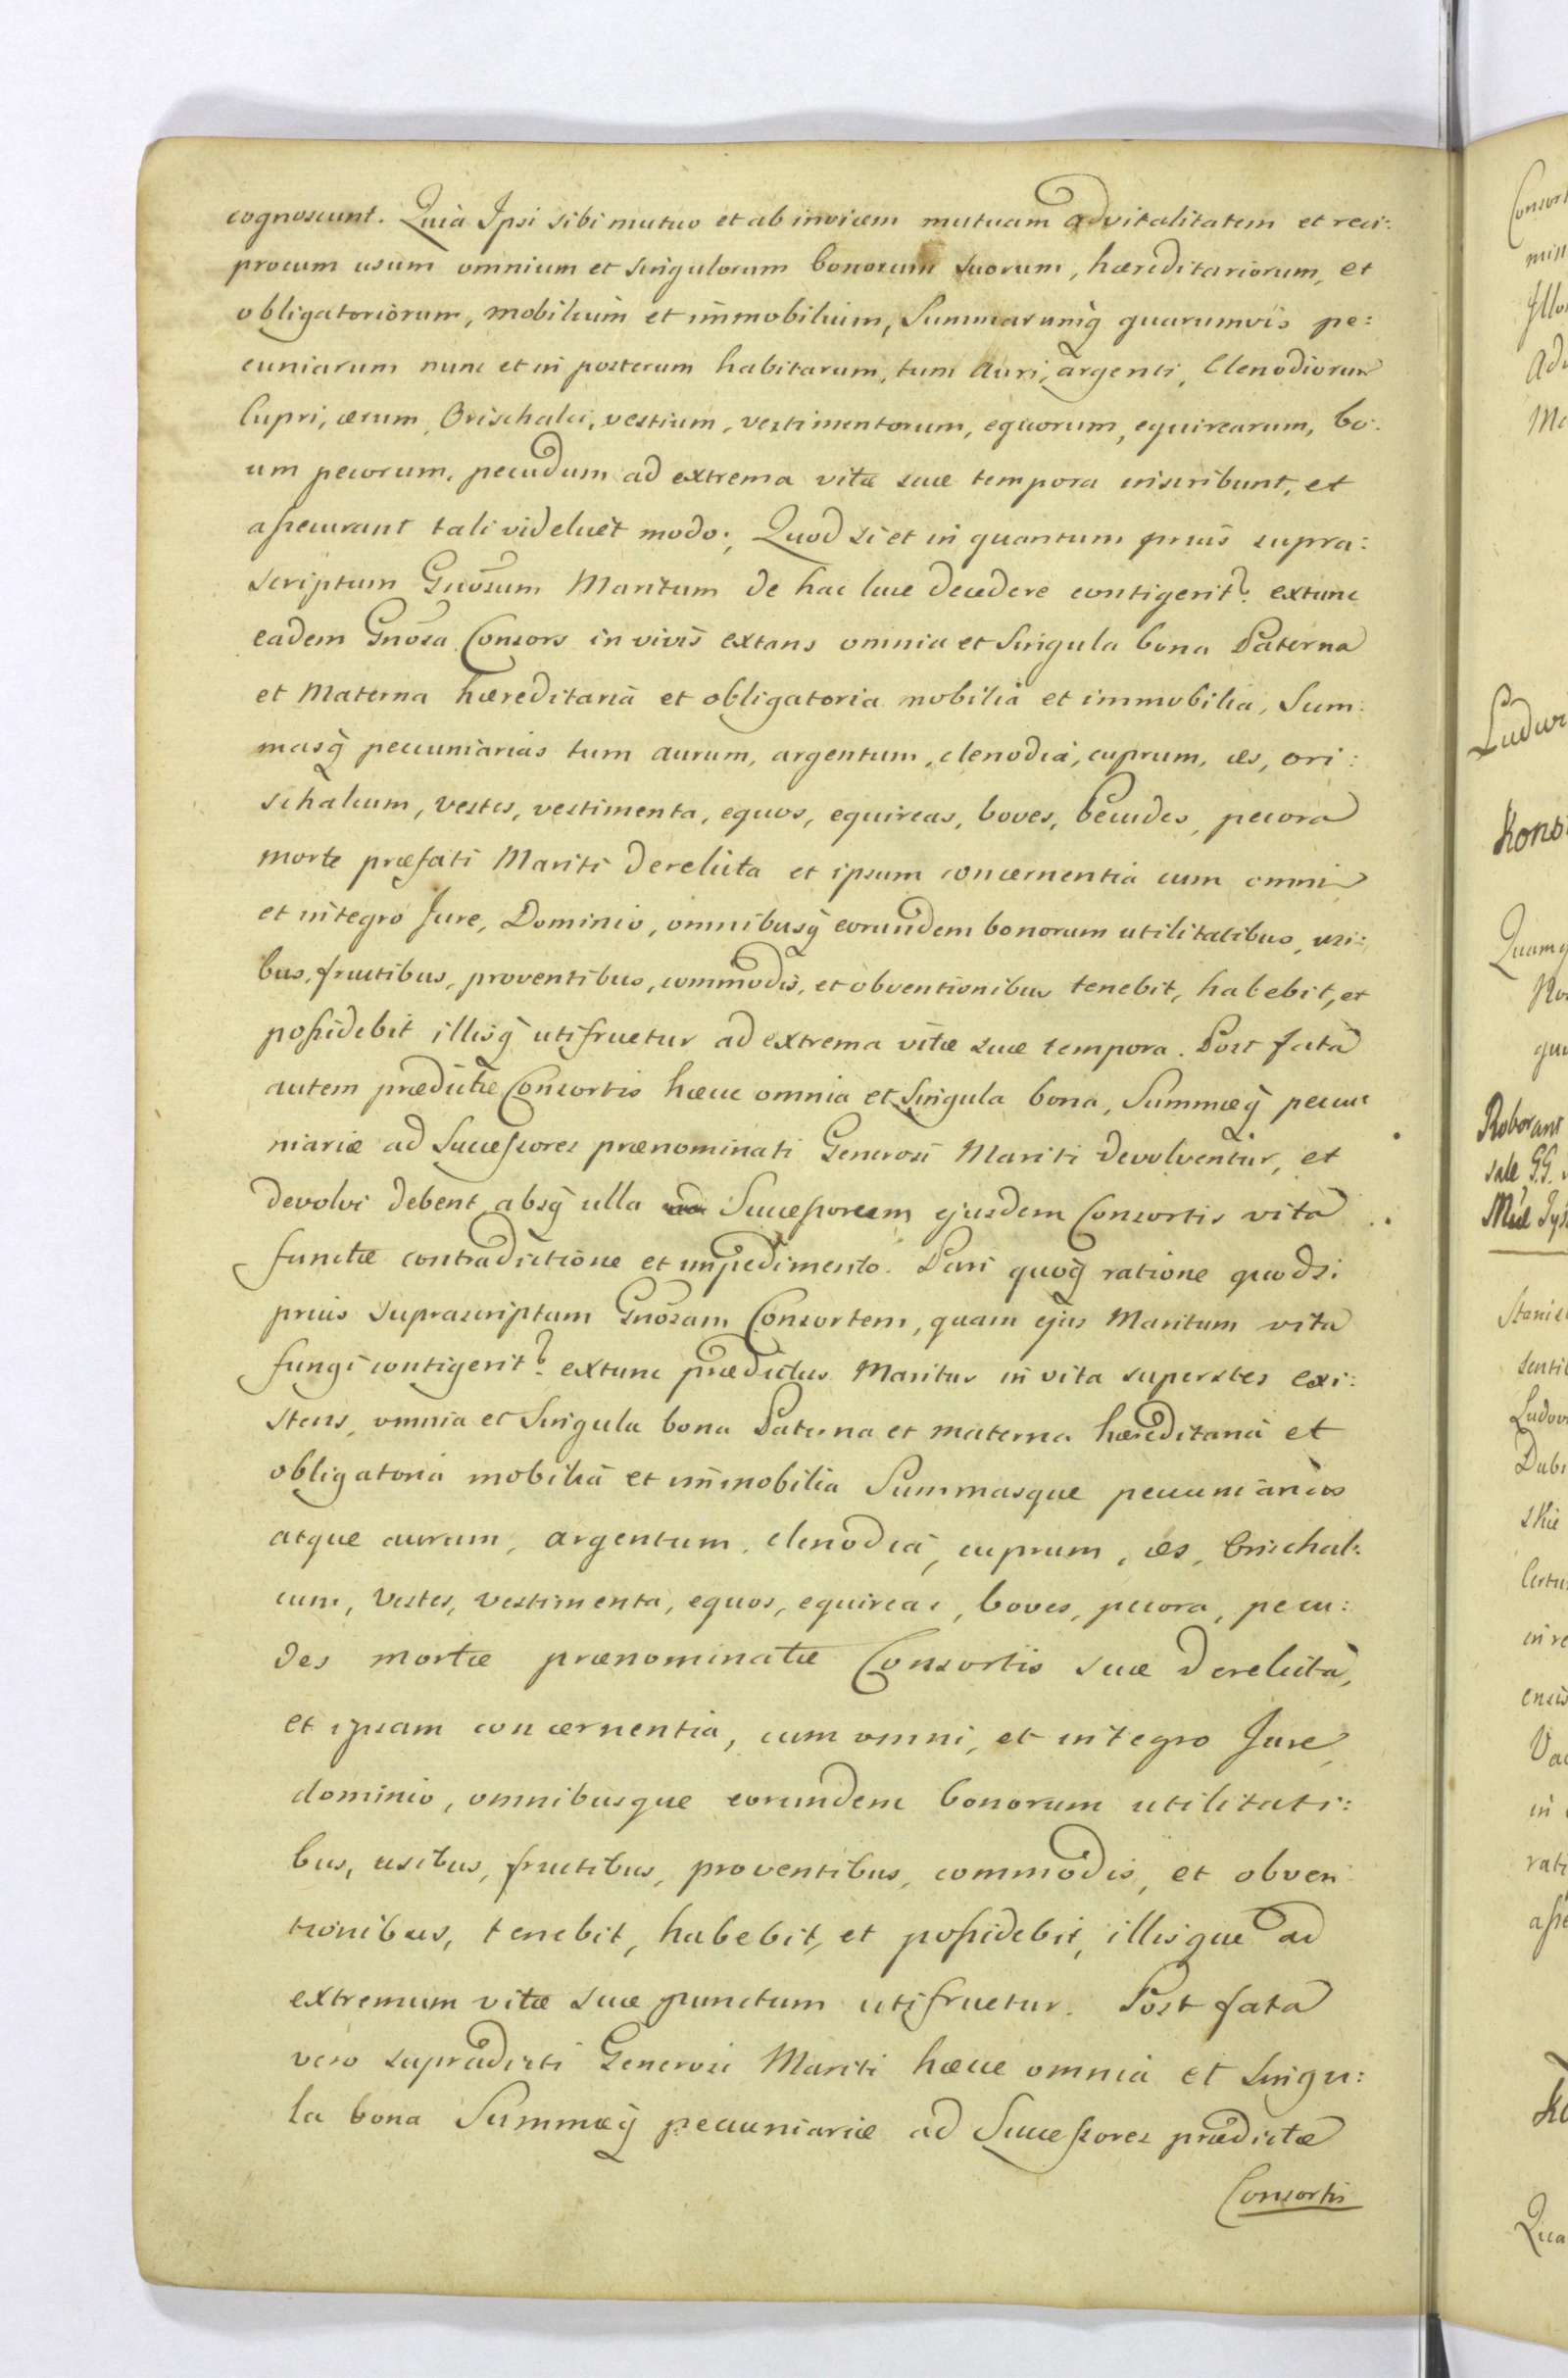 cognoscunt. Quia Ipsi sibi mutuo et ab invicem mutuam advitalitatem et reci:
procum usum omnium et singulorum bonorum suorum, hæreditariorum, et
obligatoriorum, mobilium et immobilium, Summarumq̃ quarumvis pe:
cuniarum nunc et in posterum habitarum, tum Auri, argenti, Clenodiorum
Cupri, ærum, Orischalci, vestium, vestimentorum, equorum, equirearum, bo:
um pecorum, pecudum ad extrema vitæ suæ tempora inscribunt, et
assecurant tali videlicet modo; Quod si et in quantum prius supra:
scriptum Gnõsum Maritum de hac luce decedere contigerit? extunc
eadem Gnõsa Consors in vivis extans omnia et Singula bona Paterna
et Materna hæreditaria et obligatoria mobilia et immobilia, Sum:
masq̃ pecuniarias tum aurum, argentum, clenodia, cuprum, æs, ori:
schalcum, vestes, vestimenta, equos, equireas, boves, Pecudes, pecora
morte præfati Mariti derelicta et ipsum concernentia cum omni
et integro Jure, Dominio, omnibusq̃ eorundem bonorum utilitatibus, usi:
bus, fructibus, proventibus, commodis, et obventionibus tenebit, habebit, et
possidebit illisq̃ utifruetur ad extrema vitæ suæ tempora. Post fata
autem prædictæ Consortis hæcce omnia et Singula bona, Summæq̃ pecu
niariæ ad Successores prænominati Generosi Mariti devolventur, et
devolvi debent absq̃ ulla Successorum ejusdem Consortis vita
functæ contradictione et impedimento. Pari quoq̃ ratione quodsi
prius suprascriptam Gnõsam Consortem, quam ejus Maritum vita
fungi contigerit? extunc prædictus Maritus in vita superstes exi:
stens, omnia et Singula bona Paterna et materna hæreditaria et
obligatoria mobilia et immobilia Summasque pecuniarias
atque aurum, argentum, clenodia, cuprum, æs, Orischal:
cum, Vestes, vestimenta, equos, equireas, boves, pecora, pecu:
des mortæ prænominatæ Consortis suæ derelicta,
et ipsam concernentia, cum omni, et integro Jure,
dominio, omnibusque eorundem bonorum utilitati:
bus, usibus, fructibus, proventibus, commodis, et obven
tionibus, tenebit, habebit, et possidebit, illisque ad
extremum vitæ suæ punctum utifruetur. Post fata
vero supradicti Generosi Mariti hæcce omnia et Singu:
la bona Summæq̃ pecuniariæ ad Successores prædictæ
Consortis